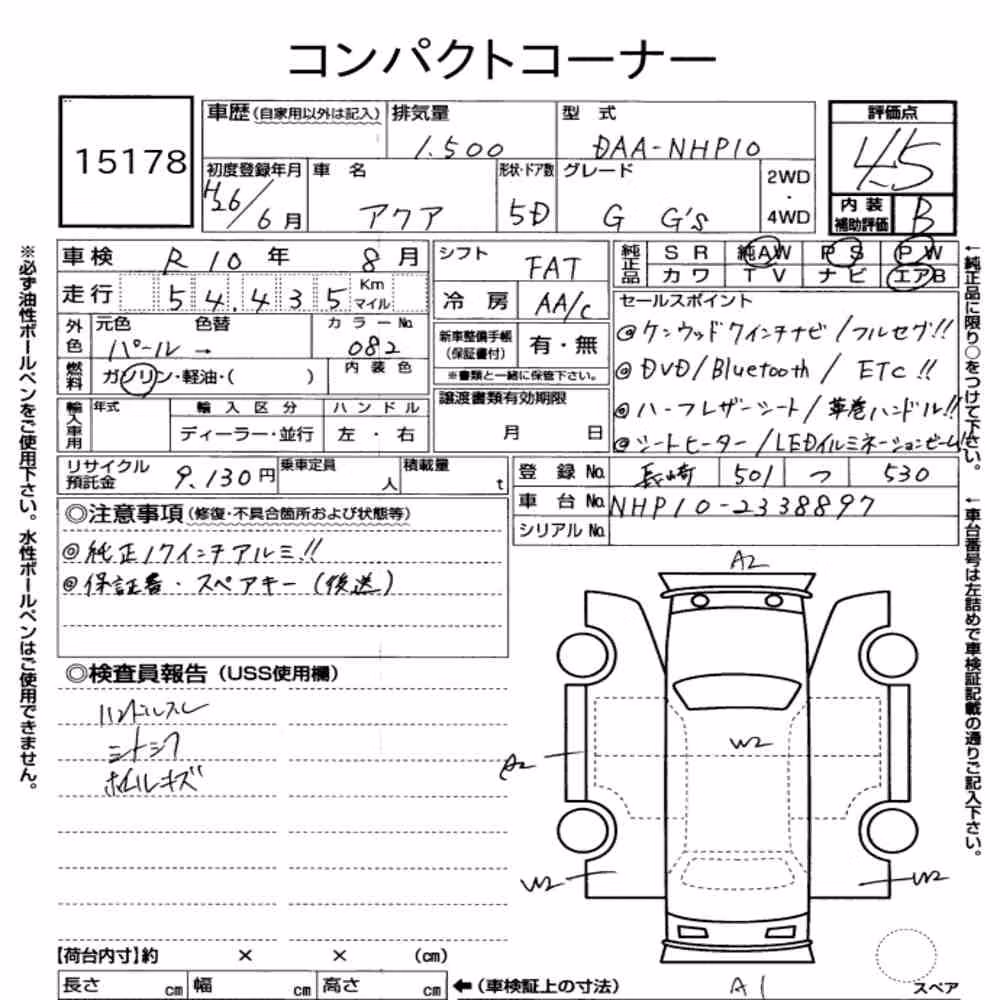 コンパクトコーナー
15178
車歴(自家用以外は記入) 排気量 1.500 型式 DAA-NHP10 評価点 4.5
初度登録年月 H26/6月 車名 アクア 形状・ドア数 5D グレード G G's 2WD・4WD 内装補助評価 B
車検 R10年 8月 シフト FAT 純正品 SR 純AW PS PW
カワ TV ナビ エアB
走行 54,435 Km マイル 冷房 AA/C セールスポイント
外色 元色 パール 色替 → カラーNo. 082 新車整備手帳(保証書付) 有・無
※書類と一緒に保管下さい。
◎ケンウッド7インチナビ/フルセグ!!
◎DVD/Bluetooth/ ETC!!
◎ハーフレザーシート/革巻ハンドル!!
◎シートヒーター/LEDイルミネーションビーム!!
燃料 ガソリン・軽油・( ) 内装色
輸入車用 年式 輸入区分 ハンドル 譲渡書類有効期限
ディーラー・並行 左・右 月 日
リサイクル預託金 9.130円 乗車定員 人 積載量 t 登録No. 長崎 501 つ 530
車台No. NHP10-2338897
シリアルNo.
◎注意事項(修復・不具合箇所および状態等)
◎純正17インチアルミ!!
◎保証書・スペアキー(後送)
◎検査員報告(USS使用欄)
ハンドルスレ
シートシワ
ホイールキズ
A2
A2
W2
W2
W2
A1
スペア
【荷台内寸】約 × × (cm)
長さ cm 幅 cm 高さ cm ←(車検証上の寸法)
※必ず油性ボールペンをご使用下さい。水性ボールペンはご使用できません。
←純正品に限り○をつけて下さい。
→車台番号は左詰めで車検証記載の通りご記入下さい。